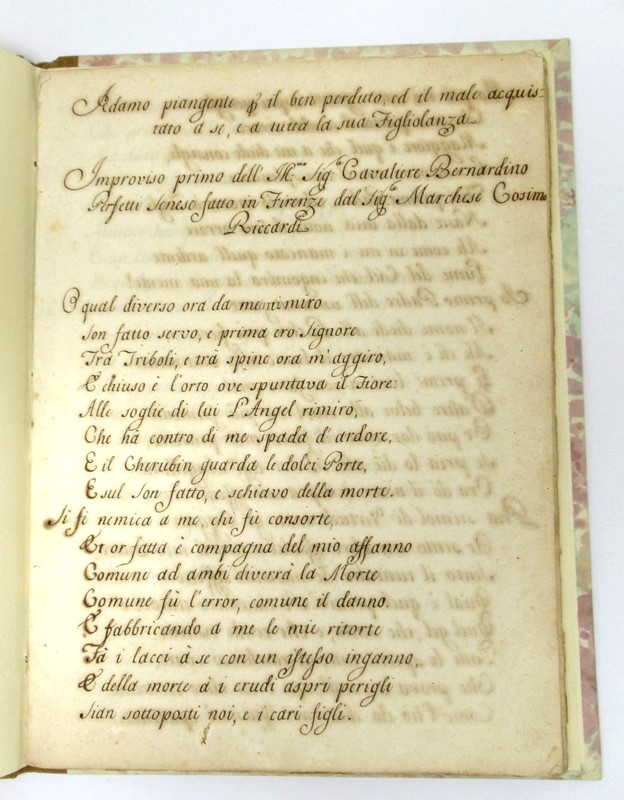 Adamo piangente ꝑ il ben perduto, ed il male acquis-
tato à se, e a tutta la sua Figliolanza
Improviso primo dell' Sig.re Cavaliere Bernardino
Perfetti Senese fatto in Firenze dal Sig.re Marchese Cosimo
Riccardi
O qual diverso ora da me mi miro
Son fatto servo, e prima ero Signore
Trà Triboli, e trà spine ora m'aggiro,
E chiuso è l'orto ove spuntava il Fiore:
Alle soglie di lui L'Angel rimiro,
Che hà contro di me spada d'ardore,
E il Cherubin guarda le dolci Porte,
E sul son fatto, e schiavo della morte.
Si fè nemica a me, chi fù consorte,
Et or fatta è compagna del mio affanno
Comune ad ambi diverrà la Morte
Comune fù l'error, comune il danno.
E fabbricando a me le mie ritorte
Fà i lacci à se con un istesso inganno,
E della morte à i crudi aspri perigli
Sian sottoposti noi, e i cari figli.